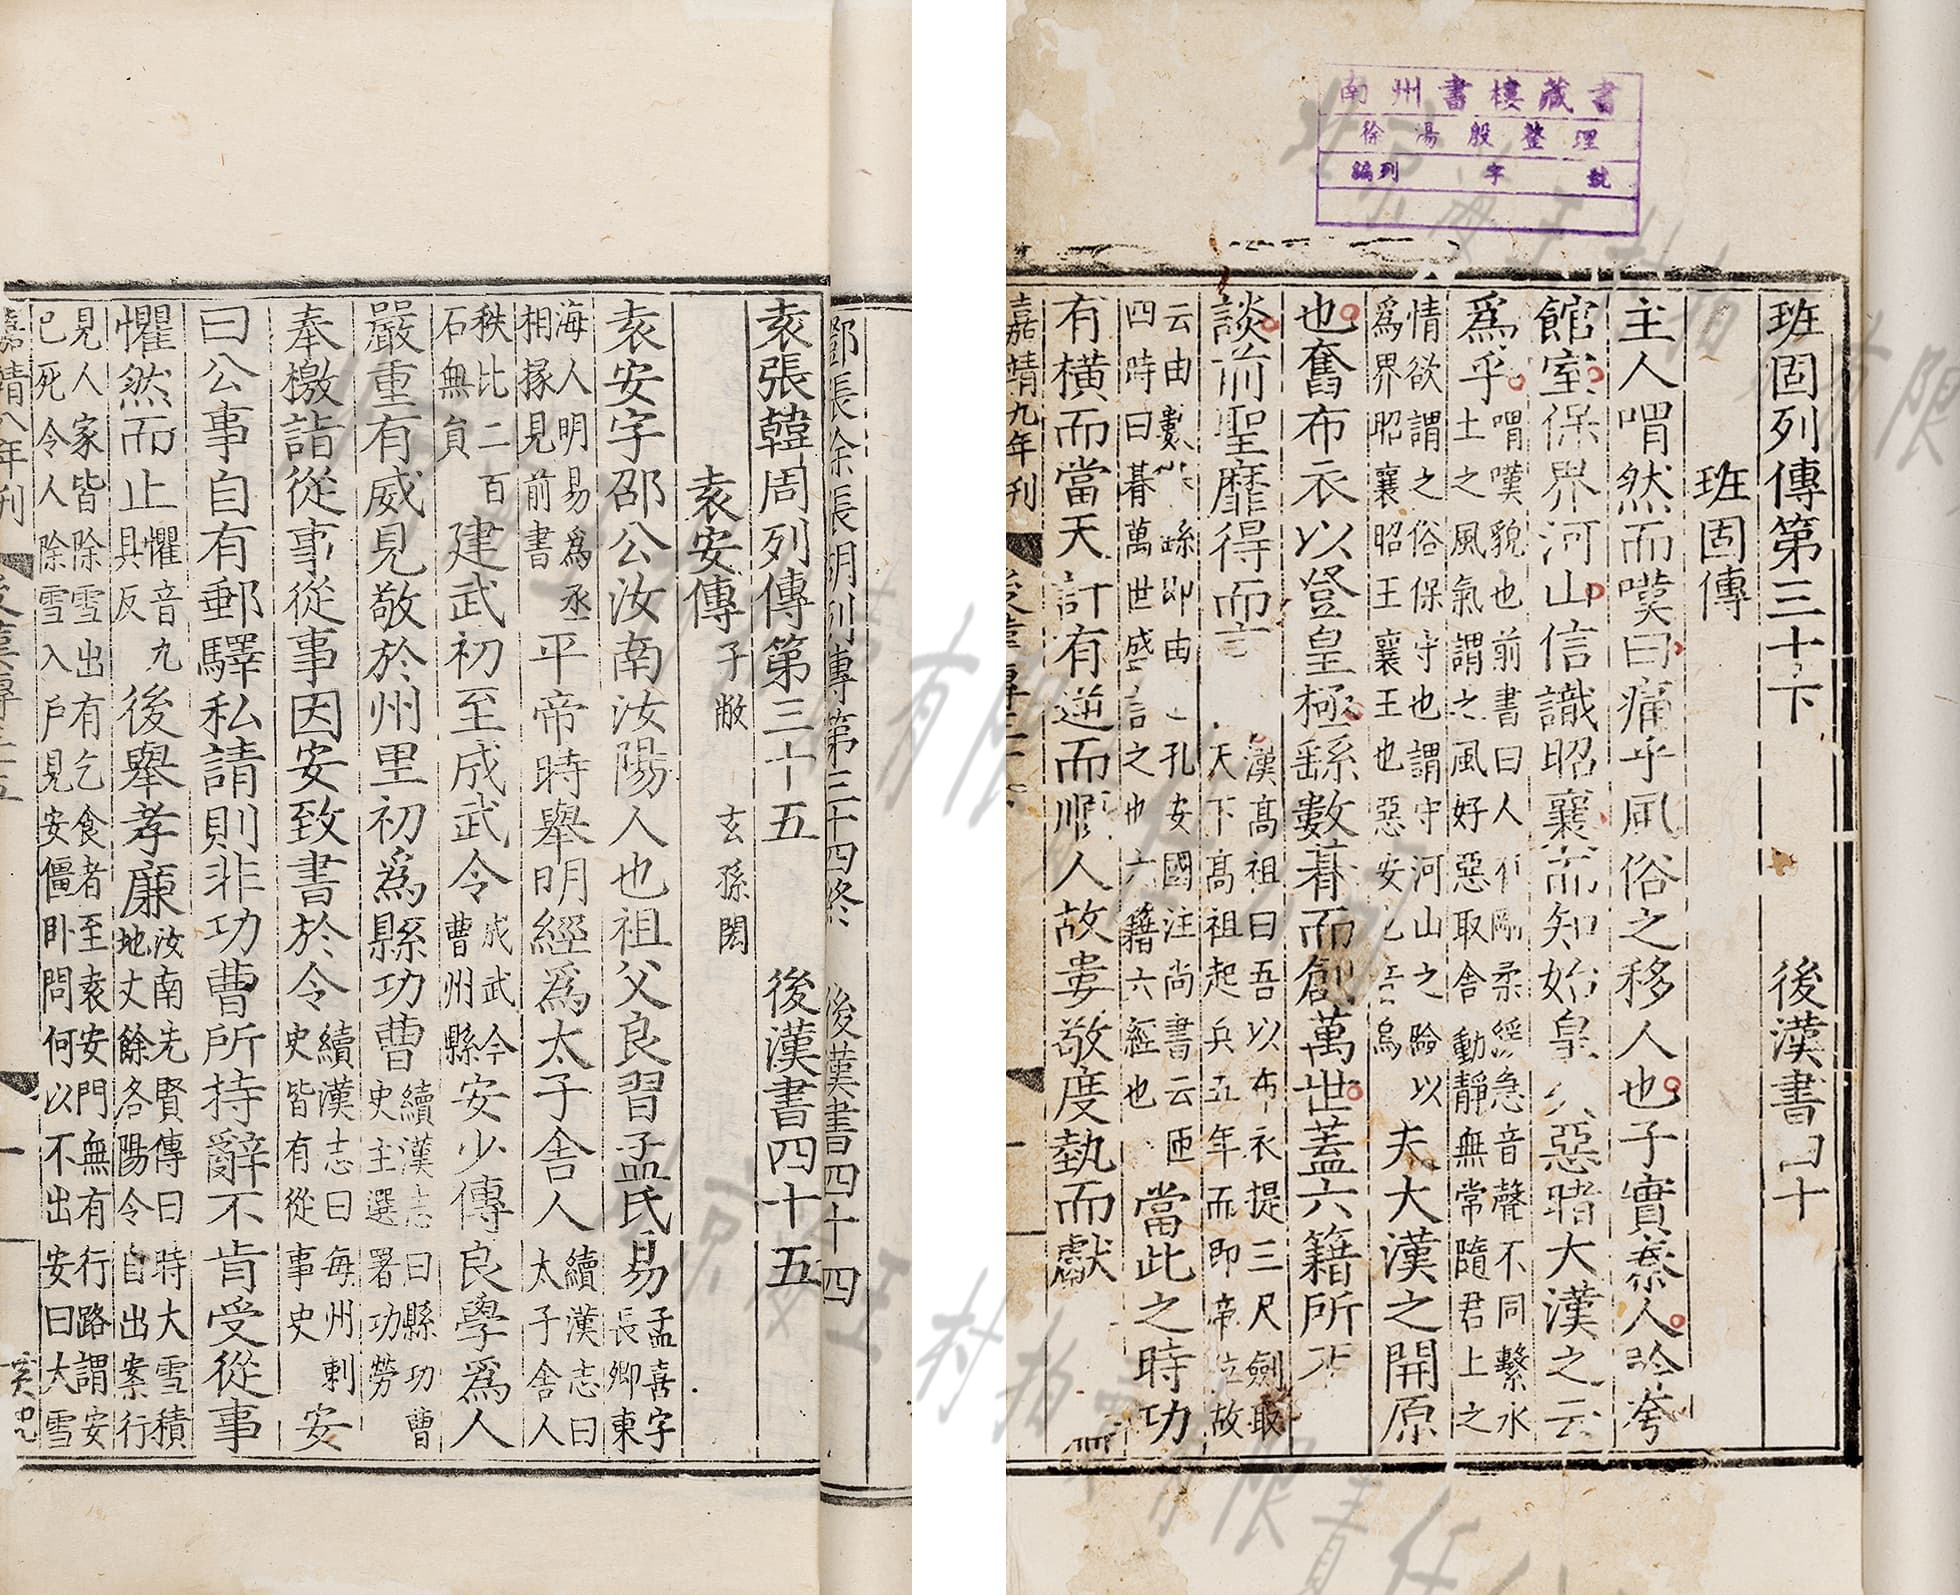 南州書樓藏書
徐湯殷整理
編列 字 號
班固列傳第三十下 後漢書四十
班固傳
主人喟然而嘆曰痛乎風俗之移人也子實秦人矜夸
館室保界河山信識昭襄而知始皇矣惡睹大漢之云
為乎喟嘆貌也前書曰人有剛柔緩急音聲不同繫水土之風氣謂之風好惡取舍動靜無常隨君上之
情欲謂之俗保守也謂守河山之險以為界昭襄昭王襄王也惡安也音烏夫大漢之開原
也奮布衣以登皇極繇數朞而創萬世蓋六籍所不
談前聖靡得而言漢高祖曰吾以布衣提三尺劍取天下高祖起兵五年而即帝位故
云由數朞繇即由也孔安國注尚書云匝四時曰朞萬世盛言之也六籍六經也當此之時功
有橫而當天討有逆而順人故婁敬度埶而獻
嘉靖九年刊
鄧張徐張胡列傳第三十四終 後漢書四十四
袁張韓周列傳第三十五 後漢書四十五
袁安傳 子敞 玄孫閎
袁安字邵公汝南汝陽人也祖父良習孟氏易孟喜字長卿東
海人明易為丞相掾見前書平帝時舉明經為太子舍人續漢志曰太子舍人
秩比二百石無員建武初至成武令成武今曹州縣安少傳良學為人
嚴重有威見敬於州里初為縣功曹續漢志曰縣功曹史主選署功勞
奉檄詣從事從事因安致書於令續漢志曰每州刺史皆有從事史安
曰公事自有郵驛私請則非功曹所持辭不肯受從事
懼然而止懼音九具反後舉孝廉汝南先賢傳曰時大雪積地丈餘洛陽令自出案行
見人家皆除雪出有乞食者至袁安門無有行路謂安已死令人除雪入戶見安僵臥問何以不出安曰大雪
嘉靖八年刊 後漢書傳三十五 一